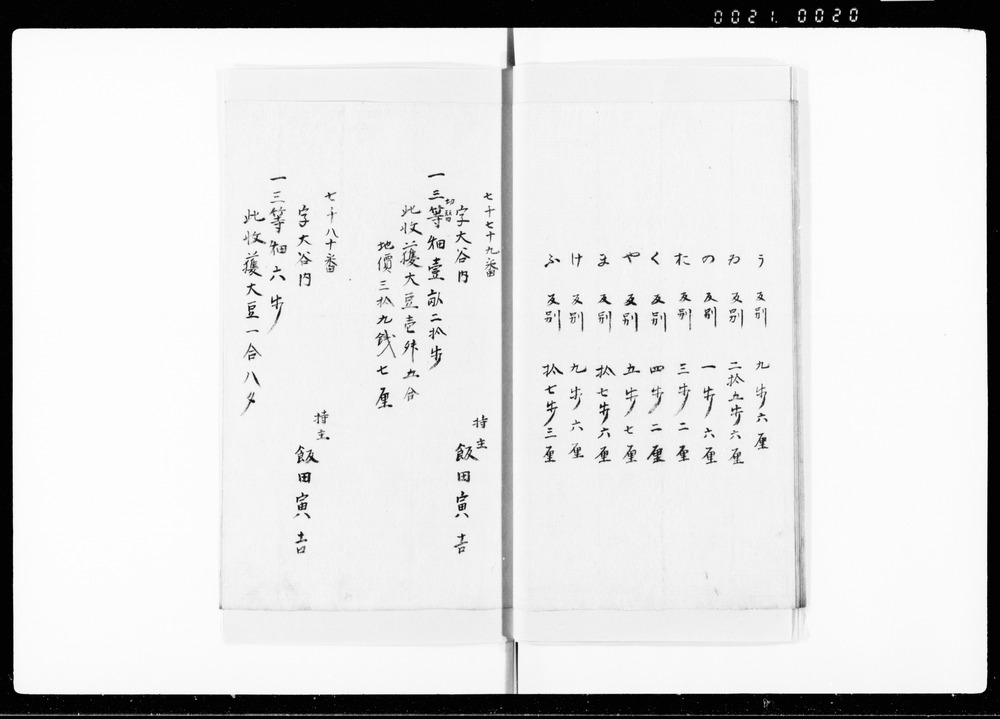 0021. 0020
う 反別 九歩六厘
ゐ 反別 二拾五歩六厘
の 反別 一歩六厘
た 反別 三歩二厘
く 反別 四歩二厘
や 反別 五歩七厘
ま 反別 拾七歩六厘
け 反別 九歩六厘
ふ 反別 拾七歩三厘
七千七十九番
字大谷内
切替
一三等畑壹畝二拾歩
此收獲大豆壱舛五合
地價三拾九銭七厘
持主
飯田寅吉
七千八十番
字大谷内
一三等畑六歩
此收獲大豆一合八夕
持主
飯田寅吉